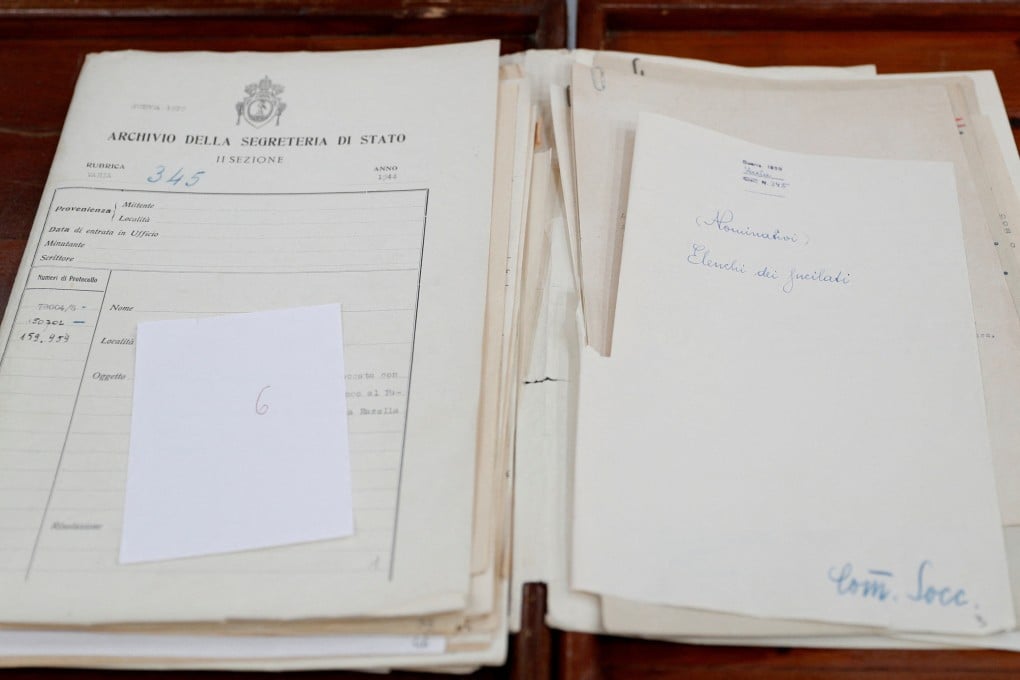 GUERRA 1939
ARCHIVIO DELLA SEGRETERIA DI STATO
II SEZIONE
RUBRICA
VARIA
345
ANNO
1944
Provenienza
Mittente
Località
Data di entrata in Ufficio
Minutante
Scrittore
Numeri di Protocollo
50202 -
159.459
Nome
Località
Oggetto
con
al
a Rasella
Risoluzione
6
1
Guerra 1939
Varia
N. 345
(Nominativi)
Elenchi dei fucilati
Com. Socc.